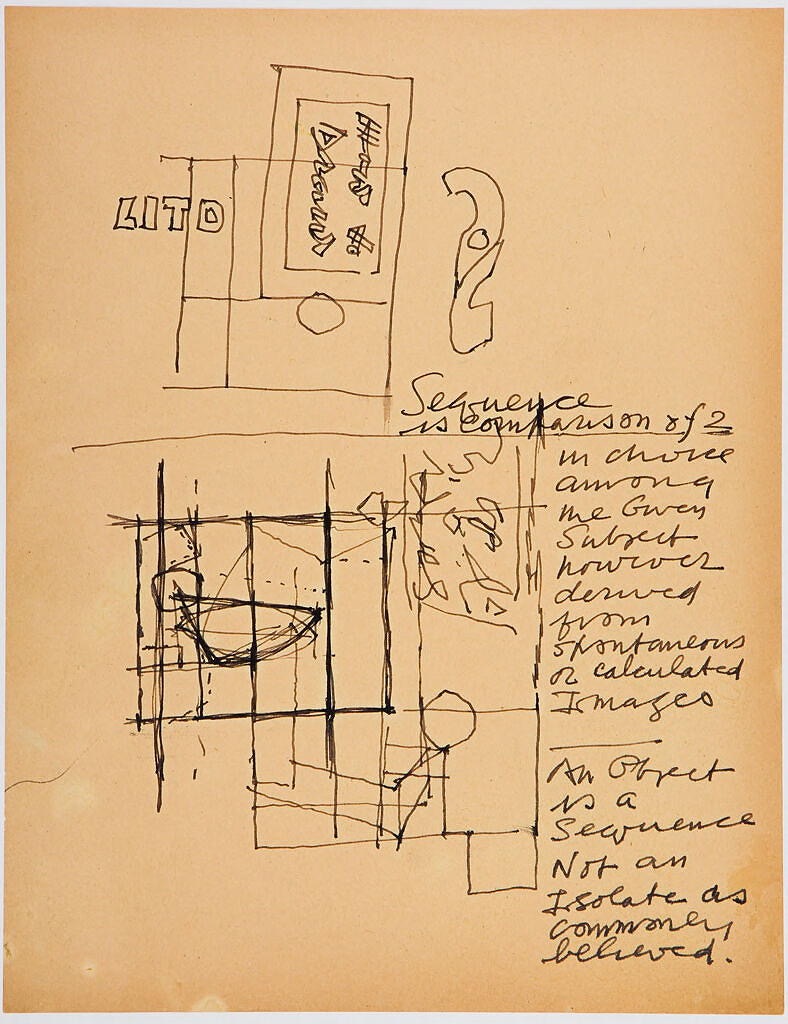 LITO
Sequence
is comparison of 2
in choice
among
the Given
Subject
however
derived
from
spontaneous
or calculated
Images
An Object
is a
Sequence
Not an
Isolate as
commonly
believed.